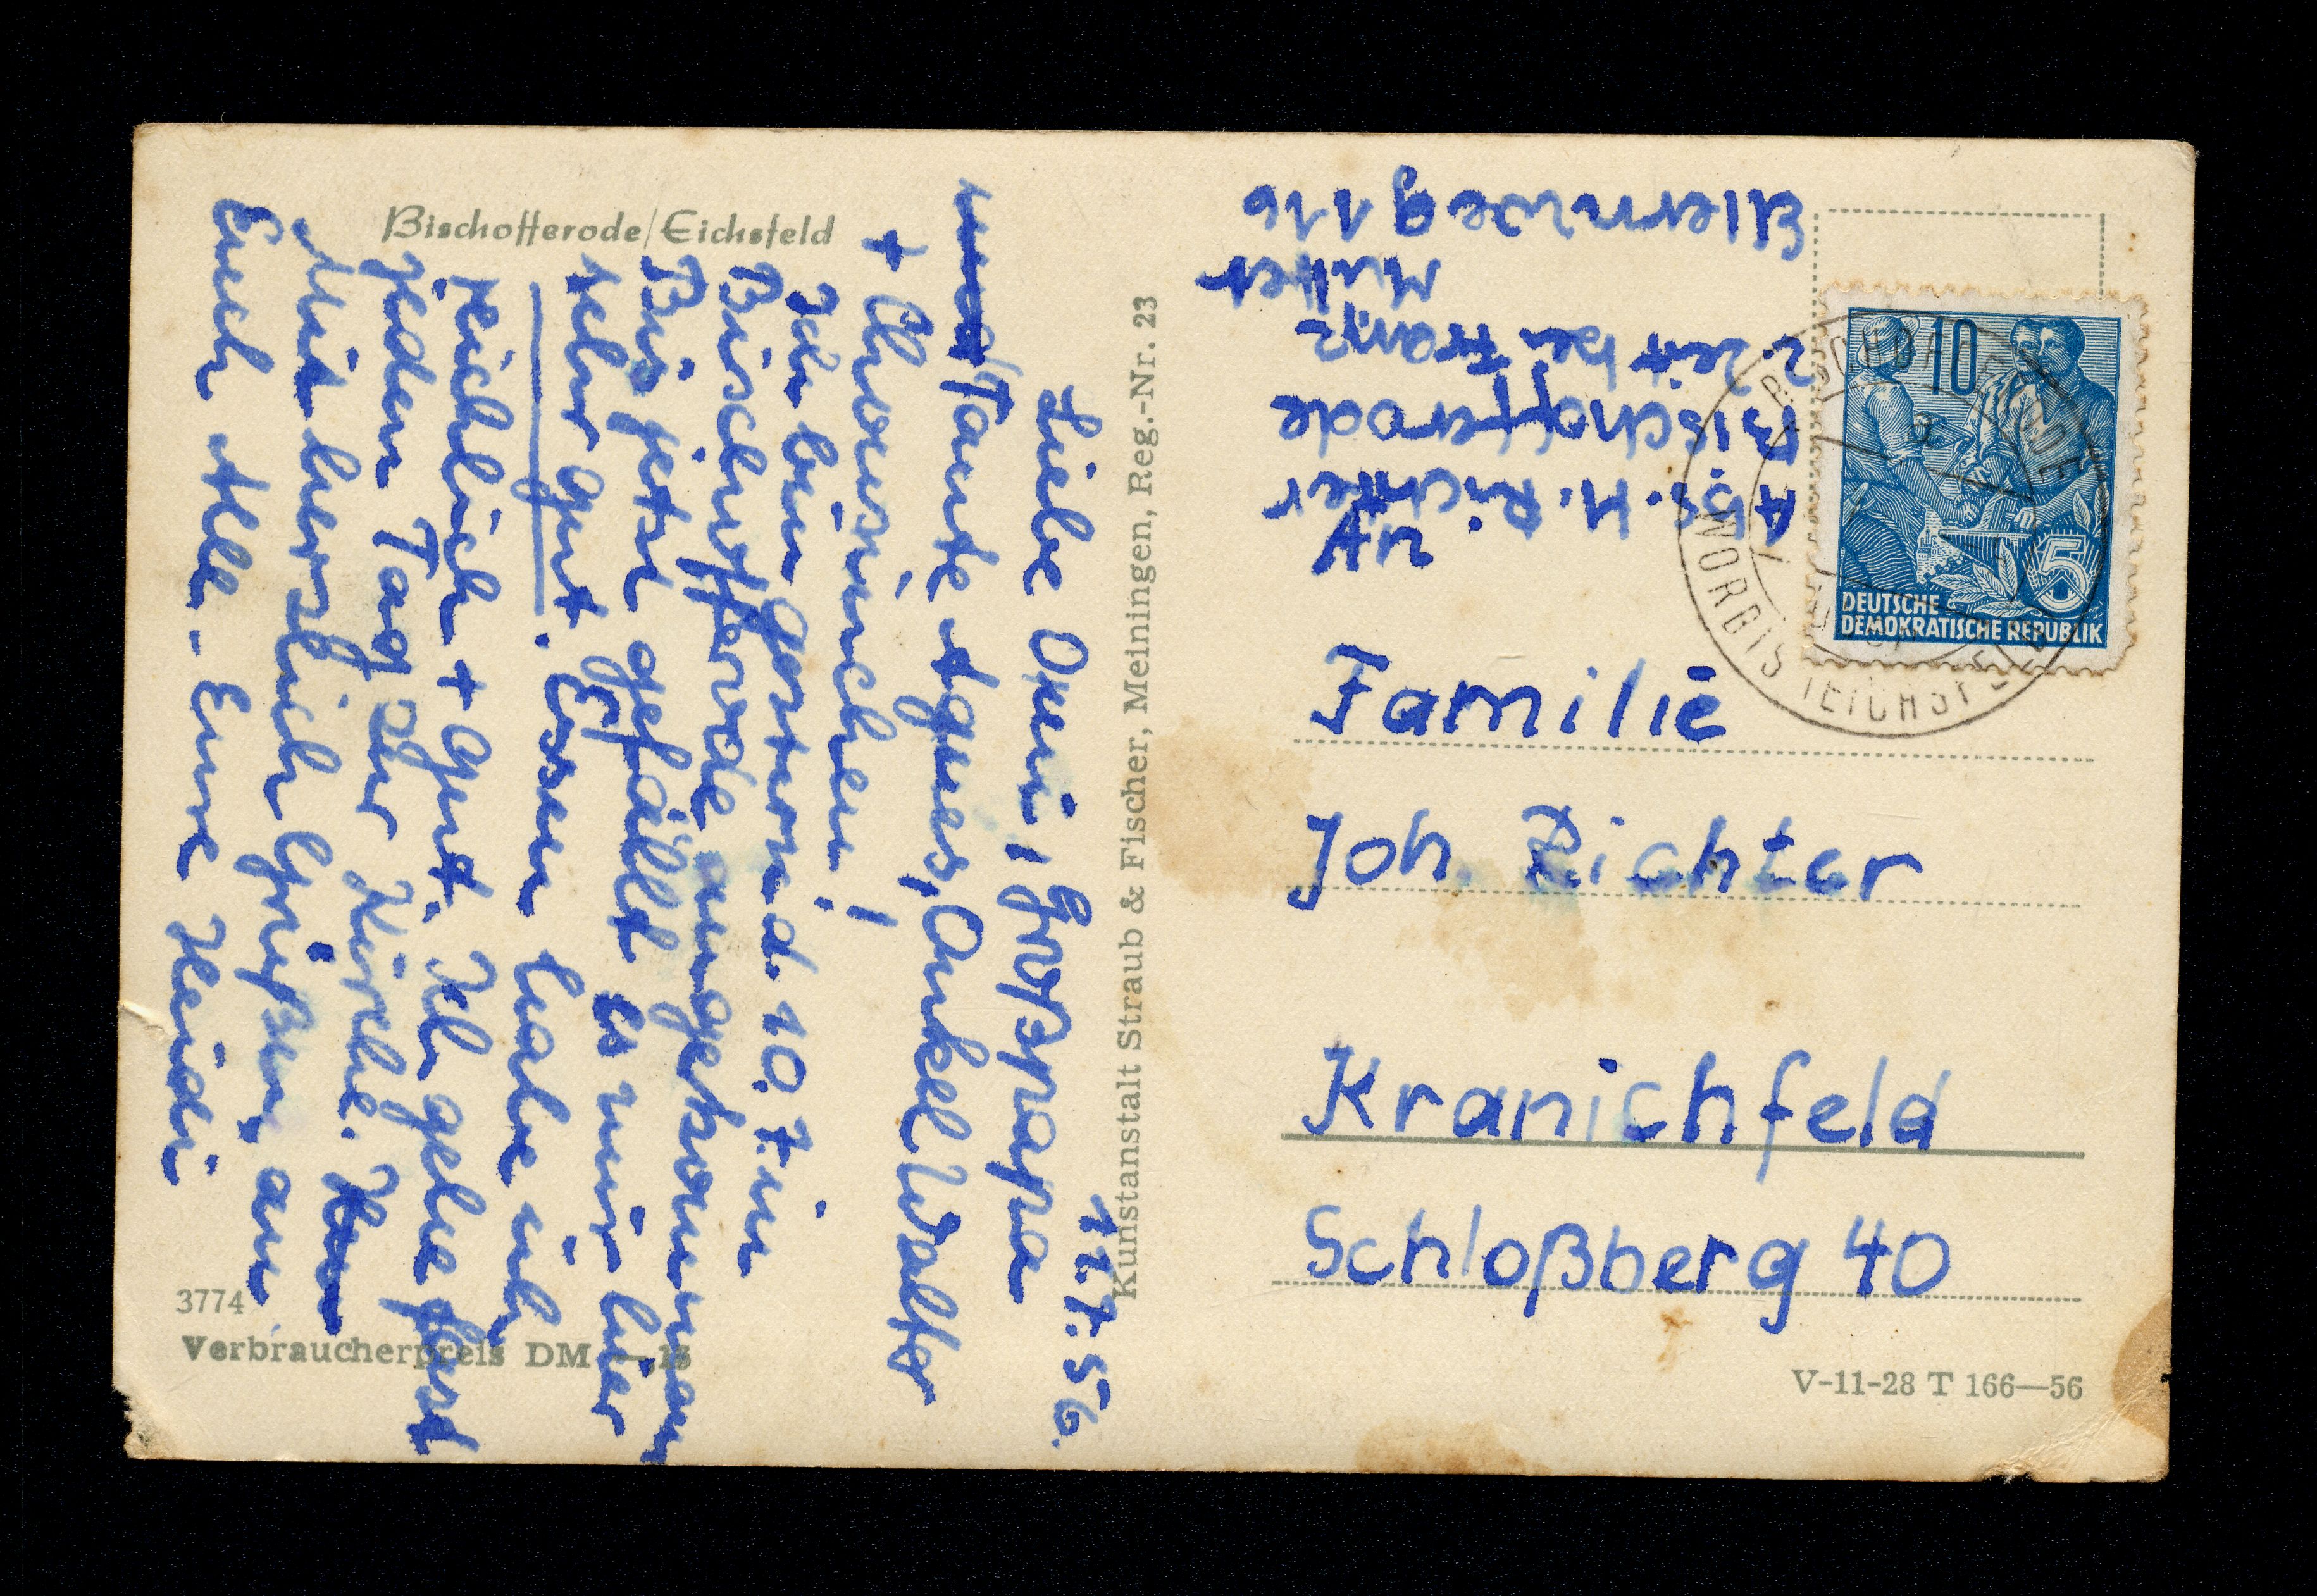 Bischofferode/Eichsfeld
17.7.56.
Liebe Omi, Großpapa
und Tante Agnes, Onkel Walter
+ Chrisinchen!
Ich bin gesund 10.7. in
Bischofferode angekommen
Bis jetzt gefällt es mir hier
sehr gut. Essen habe ich
reichlich + gut. Ich gehe fast
jeden Tag zur Kirche.
Mit herzlich Grüßen, an
Euch Alle. Eure Heidi
3774
Verbraucherpreis DM —,15
Kunstanstalt Straub & Fischer, Meiningen, Reg.-Nr. 23
Abs. H. Richter
Bischofferode
z. Zeit bei Franz
Müller
Ellernweg 116
10
5
DEUTSCHE
DEMOKRATISCHE REPUBLIK
BISCHOFFERODE
WORBIS (EICHSFELD)
An
Familie
Joh. Richter
Kranichfeld
Schloßberg 40
V-11-28 T 166—56